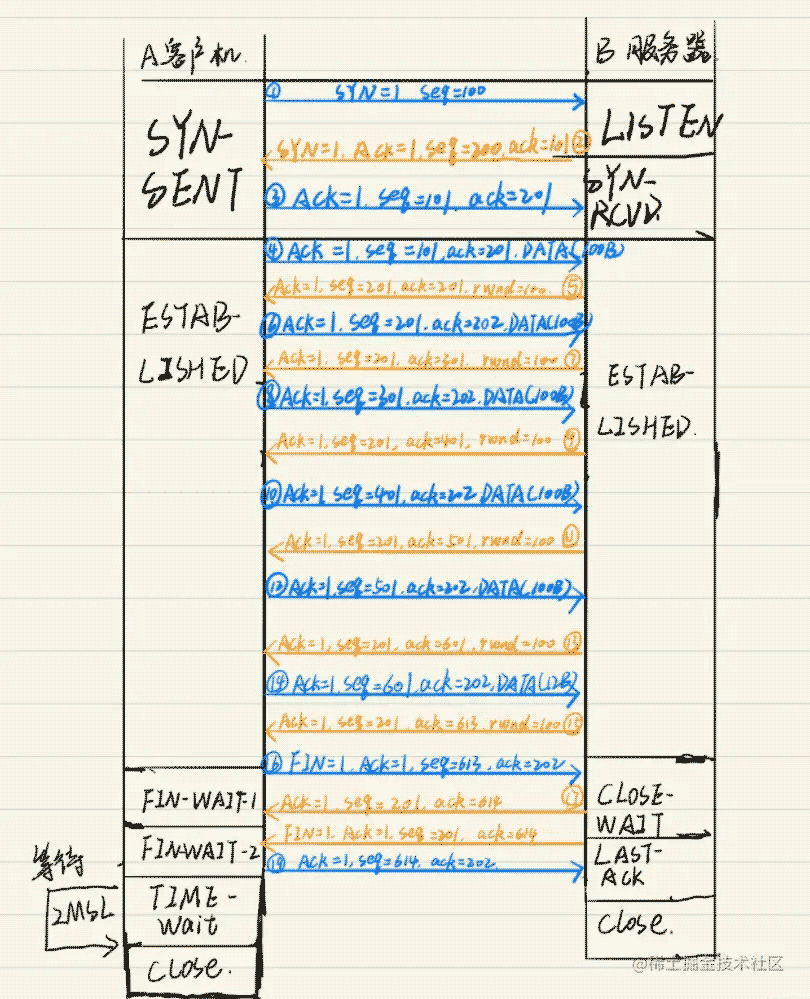 A 客户机.
B 服务器
① SYN=1 seq=100
SYN-
SENT
LISTEN
SYN=1. Ack=1, seq=200, ack=101 ②
③ Ack=1. seq=101. ack=201
SYN-
RCVD
④ Ack=1. seq=101, ack=201. DATA(100B)
Ack=1, seq=201, ack=201, rwnd=100. ⑤
ESTAB-
LISHED
⑥ Ack=1. seq=201. ack=202, DATA(100B)
Ack=1, seq=201, ack=301, rwnd=100 ⑦
⑧ Ack=1, seq=301, ack=202. DATA(100B)
ESTAB-
LISHED.
Ack=1, seq=201, ack=401, rwnd=100 ⑨
⑩ Ack=1, seq=401, ack=202. DATA(100B)
Ack=1, seq=201, ack=501, rwnd=100 ⑪
⑫ Ack=1, seq=501. ack=202. DATA(100B)
Ack=1, seq=201, ack=601, rwnd=100 ⑬
⑭ Ack=1, seq=601, ack=202, DATA(12B)
Ack=1, seq=201, ack=613, rwnd=100 ⑮
⑯ FIN=1, Ack=1, seq=613, ack=202
FIN-WAIT-1
Ack=1, seq=201, ack=614 ⑰
CLOSE-
WAIT
FIN=1. Ack=1. seq=201, ack=614
FINWAIT-2
⑲ Ack=1, seq=614. ack=202.
LAST-
ACK
等待
2MSL
TIME-
Wait
Close.
Close.
@稀土掘金技术社区